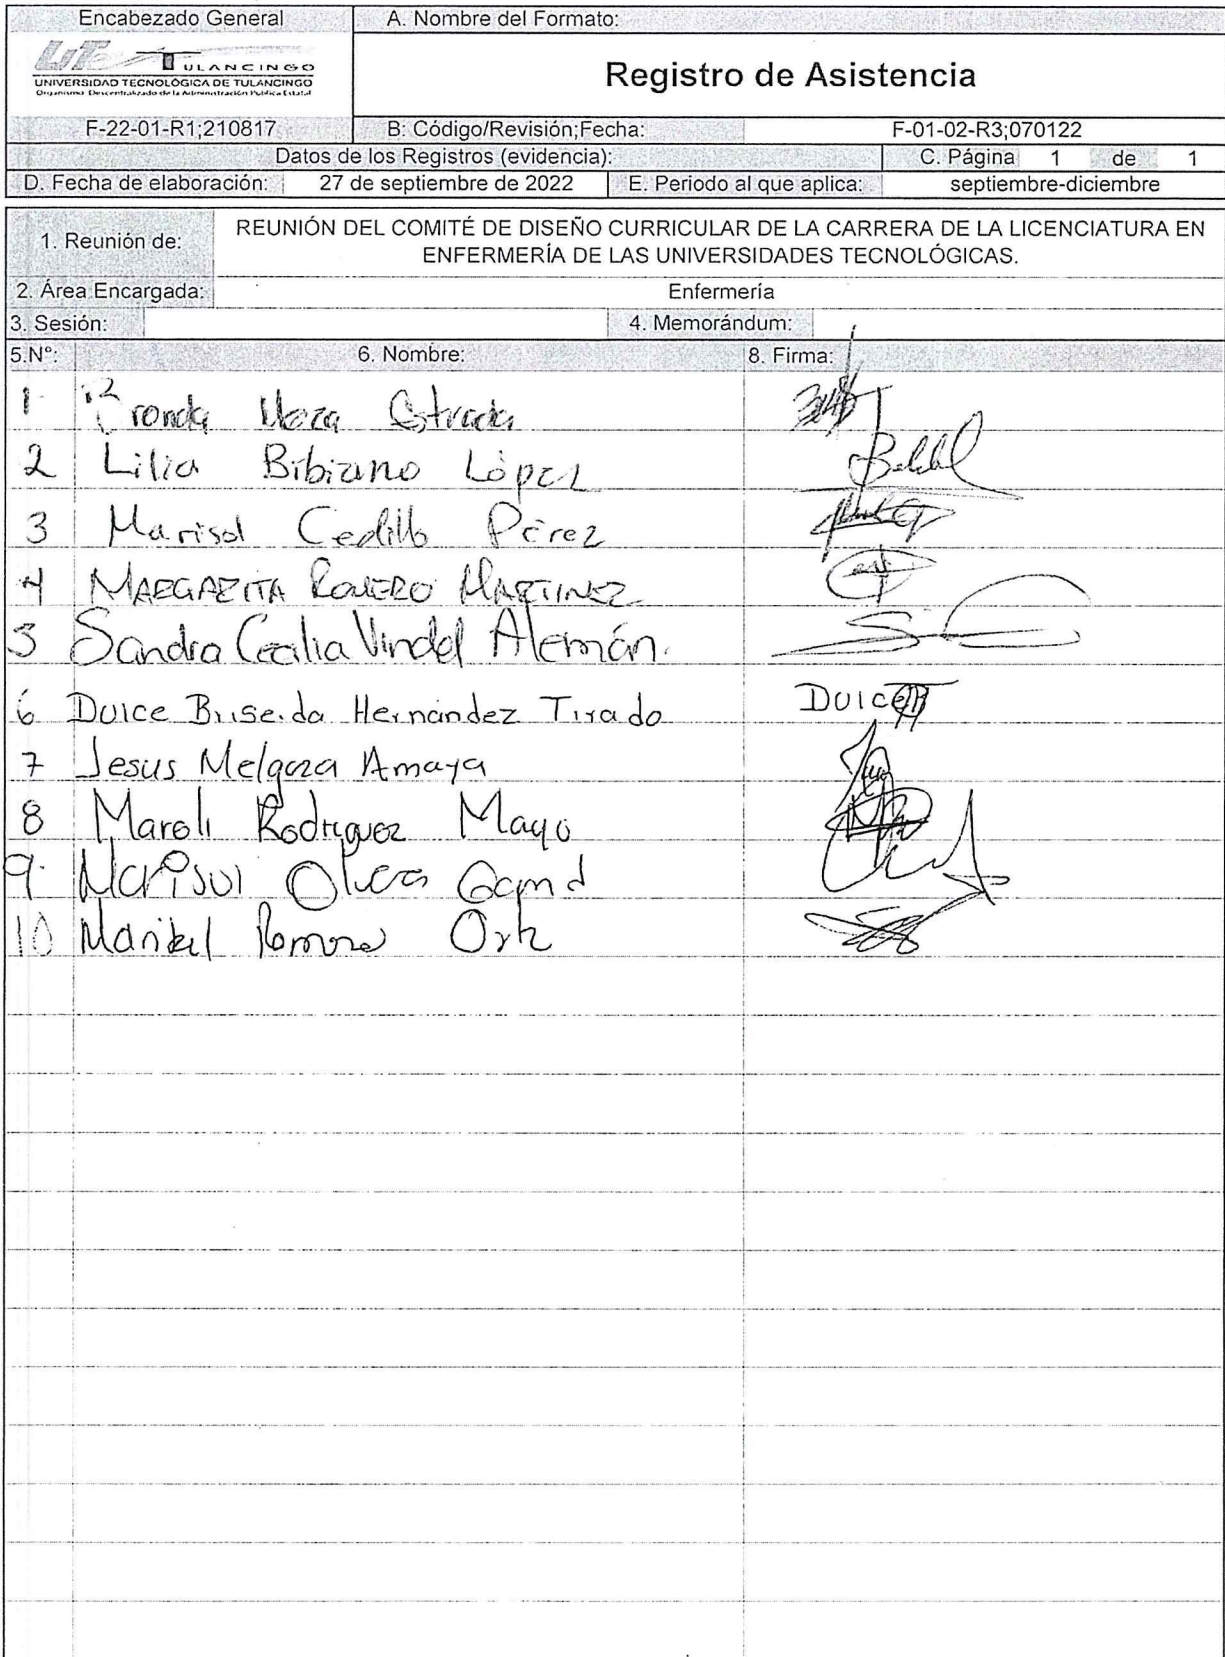 Encabezado General
A. Nombre del Formato:
UT TULANCINGO
UNIVERSIDAD TECNOLÓGICA DE TULANCINGO
Organismo Descentralizado de la Administración Pública Estatal
Registro de Asistencia
F-22-01-R1;210817
B: Código/Revisión;Fecha:
F-01-02-R3;070122
Datos de los Registros (evidencia):
C. Página 1 de 1
D. Fecha de elaboración: 27 de septiembre de 2022
E. Periodo al que aplica: septiembre-diciembre
1. Reunión de:
REUNIÓN DEL COMITÉ DE DISEÑO CURRICULAR DE LA CARRERA DE LA LICENCIATURA EN
ENFERMERÍA DE LAS UNIVERSIDADES TECNOLÓGICAS.
2. Área Encargada: Enfermería
3. Sesión:
4. Memorándum:
5.N°: 6. Nombre: 8. Firma:
1 Estrada
2 Lilia Bibiano López
3 Marisol Cedillo Pérez
4 MARGARITA ROMERO MARTINEZ
5 Sandra Cecilia Vindel Alemán.
6 Dulce Briseida Hernández Tirado Dulce
7 Jesus Melgoza Amaya
8 Maroli Rodriguez Mayo
9 Marisol
10 Maribel